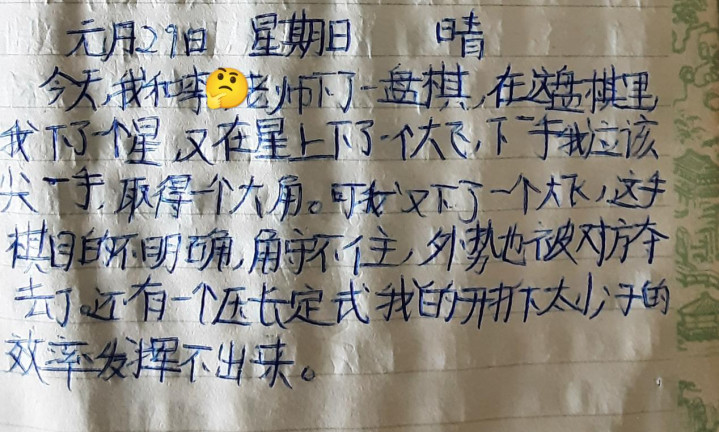 元月29日 星期日 晴
今天,我和李🤔老师下了一盘棋,在这盘棋里
我下了个星,又在星上下了一个大飞,下一手我应该
尖一手,取得一个大角。可我又下了一个大飞,这手
棋目的不明确,角守不住,外势也被对方夺
去了。还有一个压长定式我的开下太小,子的
效率发挥不出来。